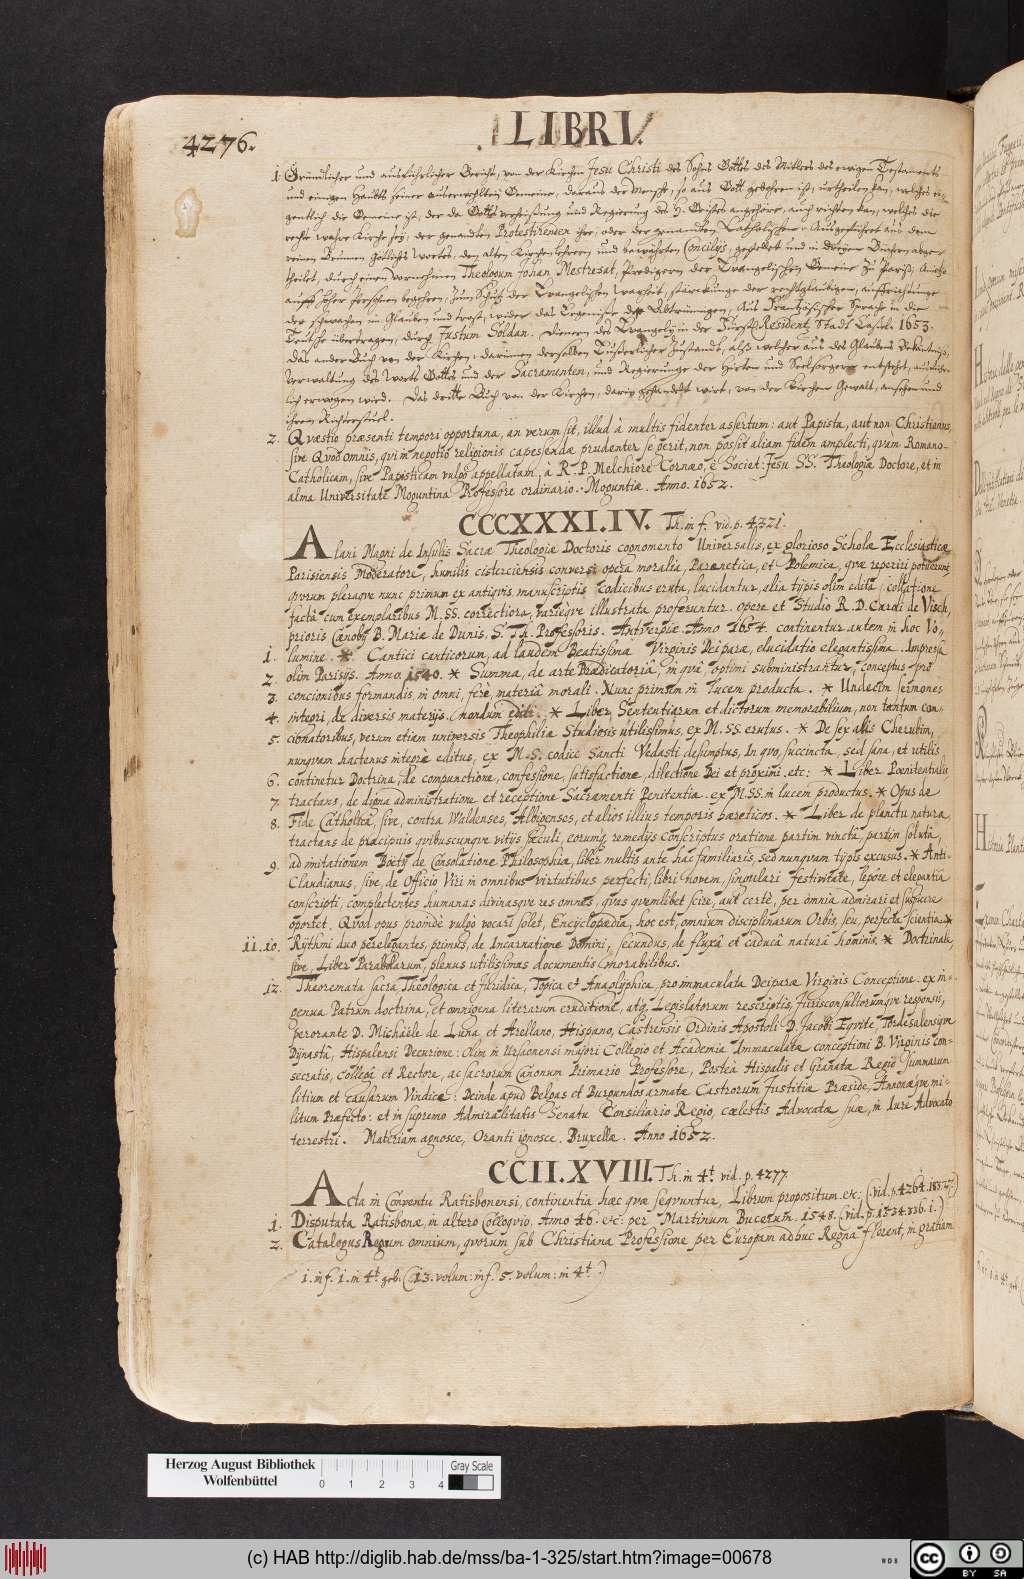 4276.
LIBRI.
1 Gründlicher und ausführlicher Bericht, von der Kirchen Jesu Christi des Sohns Gottes des Mitlers des ewigen Testaments
und einigen Haubts seiner auserwehlten Gemeine, daraus der Mensch, so aus Gott gebohren ist, urtheilen kan, welches ei-
gentlich die Gemeine ist, der da Gottes verheissung und Regierung des H. Geistes angehöre, auch richten kan, welches die
rechte wahre Kirche sey, der genandten Protestirenden ihre, oder der genandten Catholischen. Ausgeführet aus dem
reinen Brunnen Göttliches Wortes, den alten Kirchenlehrern und bewährten Concilys, gestellet und in dreyen Büchern abge-
theilet, durch einen vornehmen Theologum Johan Mestresat, Predigern der Evangelischen Gemeine zu Pariß,
auff hoher Persohnen begehren, zum Schutz der Evangelischen Warheit, stärckunge der rechtglaubigen, auffrichtunge
der schwachen im Glauben und trost, wider das Ergernisse der Abtrünnigen, Aus Frantzösischer Sprache in die
Teutsche übertragen, durch Justum Soldan. Dienern des Evangely in der Fürstl. Resident, Stadt Cassel. 1653.
Das ander Buch von der Kirchen, darinnen derselben Eusserlicher Zustandt, alß welcher aus des Glaubens Bekäntniß,
Verwaltung des Worts Gottes und der Sacramenten, und Regierunge der Hirten und Seelsorger entstehet,
lich erwogen wird. Das dritte Buch von der Kirchen, darin gehandelt wirt, von der Kirchen Gewalt, ansehen und
ihrem Richterstuel.
2. Qvæstio præsenti tempori opportuna, an verum sit, illud à multis fidenter assertum: aut Papista, aut non Christianus,
sive Qvod omnis, qvi in negotio religionis capessendæ prudenter se gerit, non possit aliam fidem amplecti, qvam Romano-
Catholicam, sive Papisticam vulgo appellatam, à R. P. Melchiore Cornæo, è Societ: Jesu SS. Theologiæ Doctore, et in
alma Universitate Moguntina Professore ordinario. Moguntiæ. Anno. 1652.
CCCXXXI.IV. Th. in f. vid. p. 4321.
Alani Magni de Insulis Sacræ Theologiæ Doctoris cognomento Universalis, ex glorioso Scholæ Ecclesiasticæ
Parisiensis Moderatore, humilis cisterciensis conversi opera moralia, Parænetica, et Polemica, qvæ reperiri potuerunt,
qvorum pleraqve nunc primùm ex antiqvis manuscriptis Codicibus eruta, lucidantur, alia typis olim edita collatione
facta cum exemplaribus M.SS. correctiora, variéqve illustrata proferuntur. opere et Studio R. D. Caroli de Visch,
prioris Cænoby B. Mariæ de Dunis, S. Th. Professoris. Antverpiæ. Anno 1654. continentur autem in hoc Vo-
1. lumine. * Cantici canticorum, ad laudem Beatissimæ Virginis Deiparæ, elucidatio elegantissima. Impressa
2. olim Parisys. Anno 1540. * Summa, de arte Prædicatoria, in qva, optimi subministrantur, conceptus pro
3. concionibus formandis, in omni, ferè, materia morali. Nunc primum in lucem producta. * Undecim Sermones
4. integri, de diversis materys. nondum editi. * Liber Sententiarum et dictorum memorabilium, non tantum con-
5. cionatoribus, verum etiam universis Theophiliæ Studiosis utilissimus, ex M.SS. erutus. * De sex alis Cherubim,
nunqvam hactenus integrè editus, ex M.S. codice Sancti Vedasti desumptus, In qvo, succincta, sed sana, et utilis
6. continetur Doctrina, de compunctione, confessione, satisfactione, dilectione Dei et proximi. etc: * Liber Pœnitentialis
7. tractans, de digna administratione et receptione Sacramenti Pænitentiæ. ex M.SS. in lucem productus. * Opus de
8. Fide Catholica, sive, contra Waldenses, Albigenses, et alios illius temporis hæreticos. * Liber de planctu naturæ
tractans de præcipuis qvibuscunqve vitys sæculi, eorumq remedys Conscriptus oratione partim vincta, partim soluta,
9. ad imitationem Boëty de Consolatione Philosophiæ, liber multis ante hac familiaris, sed nunqvam typis excusus. * Anti-
Claudianus, sive, de Officio Viri in omnibus virtutibus perfecti, libri novem, singulari festivitate, lepore et elegantia
conscripti, complectentes humanas divinasqve res omnes, qvas qvemlibet scire, aut certè, per omnia admirari et suspicere
oportet. Qvod opus proindè vulgò vocari solet, Encyclopædia, hoc est, omnium disciplinarum Orbis, seu, perfecta scientia. *
11. 10. Rythmi duo perelegantes, primus, de Incarnatione Domini, secundus, de fluxa et caduca natura hominis. * Doctrinale,
sive, Liber Parabolarum, plenus utilissimis documentis moralibus.
12. Theoremata sacra Theologica et Juridica, Topica et Anaglyphica, pro immaculata Deiparæ Virginis Conceptione. ex in-
genua Patrum doctrina, et omnigena literarum eruditione, atq Legislatorum rescriptis, Jurisconsultorumqve responsis,
perorante D. Michaële de Luna et Arellano, Hispano, Castrensis Ordinis Apostoli D. Jacobi Eqvite, Tordesalensiqve
Dynasta, Hispalensi Decurione: olim in Ursaonensi majori Collegio et Academia Immaculatæ conceptioni B. Virginis con-
secratis, Collega et Rectore, ac sacrorum Canonum Primario Professore, Postea Hispalis et Granatæ Regio Summarum
litium et causarum Vindice: Deinde apud Belgas et Burgundos armatæ Castrorum Justitiæ Præside, Annonæqve mi-
litum Præfecto: et in supremo Admiralitatis Senatu Consiliario Regio, cœlestis Advocatæ suæ, in Jure Advocato
terrestri. Materiam agnosce, Oranti ignosce, Bruxellæ. Anno 1652.
CCII.XVIII. Th. in 4t. vid. p. 4277.
Acta in Conventu Ratisbonensi, continentia hæc qvæ seqvuntur, Librum propositum. etc: (vid. p. 4264. 183. 27.)
1. Disputata Ratisbonæ, in altero Colloqvio, Anno 46. etc: per Martinum Bucerum. 1548. (vid. p. 1534. 336. 1.)
2. Catalogus Regum omnium, qvorum sub Christiana Professione per Europam adhuc Regna florent, in gratiam
1. inf. 1. in 4t. geb. (13. volum: inf. 5. volum: in 4t.)
Herzog August Bibliothek
Wolfenbüttel
0 1 2 3 4
Gray Scale
(c) HAB http://diglib.hab.de/mss/ba-1-325/start.htm?image=00678
WDB
cc BY SA